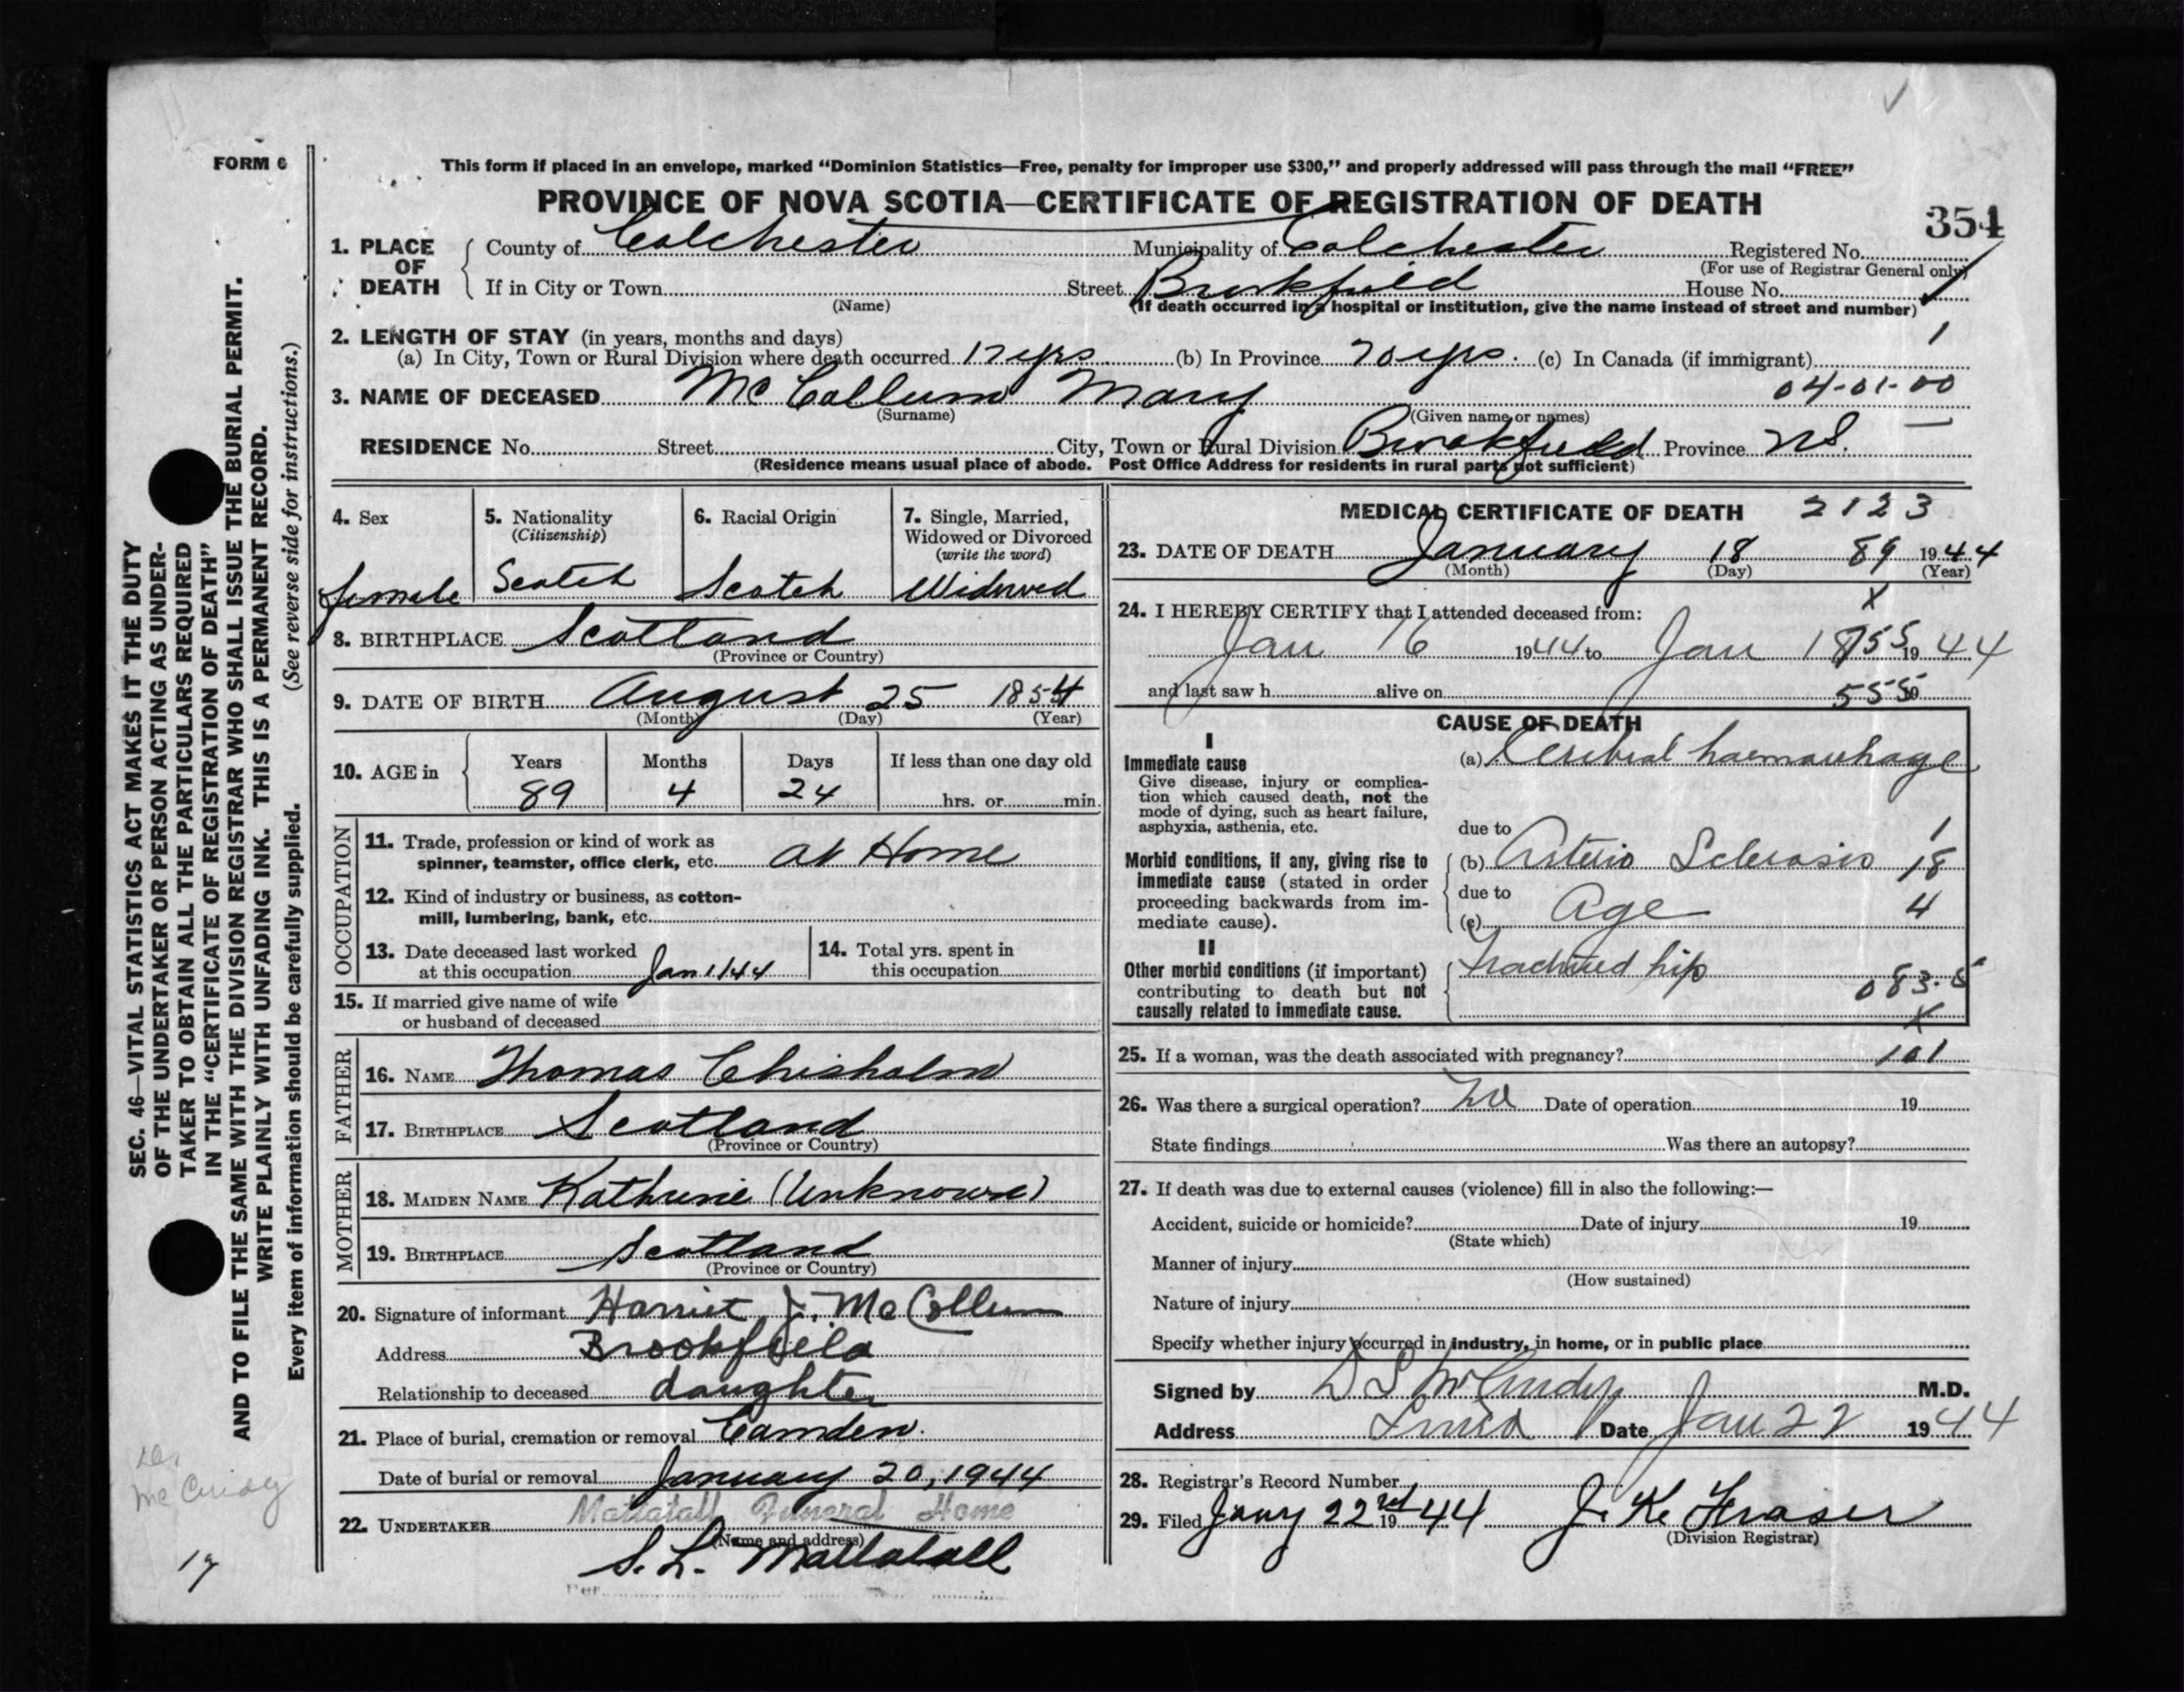 FORM 6
This form if placed in an envelope, marked “Dominion Statistics—Free, penalty for improper use $300,” and properly addressed will pass through the mail “FREE”
PROVINCE OF NOVA SCOTIA—CERTIFICATE OF REGISTRATION OF DEATH
354
1. PLACE OF DEATH
County of Colchester Municipality of Colchester Registered No.
(For use of Registrar General only)
If in City or Town Street Brookfield House No.
(Name) (If death occurred in a hospital or institution, give the name instead of street and number)
2. LENGTH OF STAY (in years, months and days) 1
(a) In City, Town or Rural Division where death occurred 17 yrs (b) In Province 70 yrs. (c) In Canada (if immigrant)
3. NAME OF DECEASED McCallum Mary 04-01-00
(Surname) (Given name or names)
RESIDENCE No. Street City, Town or Rural Division Brookfield Province NS.
(Residence means usual place of abode. Post Office Address for residents in rural parts not sufficient)
4. Sex
female
5. Nationality
(Citizenship)
Scotch
6. Racial Origin
Scotch
7. Single, Married,
Widowed or Divorced
(write the word)
Widowed
8. BIRTHPLACE Scotland
(Province or Country)
9. DATE OF BIRTH August 25 1854
(Month) (Day) (Year)
10. AGE in
Years Months Days If less than one day old
89 4 24 hrs. or min.
OCCUPATION
11. Trade, profession or kind of work as
spinner, teamster, office clerk, etc. at Home
12. Kind of industry or business, as cotton-
mill, lumbering, bank, etc.
13. Date deceased last worked
at this occupation Jan 1/44
14. Total yrs. spent in
this occupation
15. If married give name of wife
or husband of deceased
FATHER
16. NAME Thomas Chisholm
17. BIRTHPLACE Scotland
(Province or Country)
MOTHER
18. MAIDEN NAME Kathrine (Unknown)
19. BIRTHPLACE Scotland
(Province or Country)
20. Signature of informant Harriet J. McCollum
Address Brookfield
Relationship to deceased daughter
21. Place of burial, cremation or removal Camden.
Date of burial or removal January 20, 1944
22. UNDERTAKER Mattatall Funeral Home
(Name and address)
S. L. Mattatall
Per
MEDICAL CERTIFICATE OF DEATH 2123
23. DATE OF DEATH January 18 89 1944
(Month) (Day) (Year)
24. I HEREBY CERTIFY that I attended deceased from:
X
Jan 16 1944 to Jan 18 1944
and last saw h alive on 555 19
CAUSE OF DEATH
I
Immediate cause
Give disease, injury or complica-
tion which caused death, not the
mode of dying, such as heart failure,
asphyxia, asthenia, etc.
(a) Cerebral haemorrhage
due to 1
Morbid conditions, if any, giving rise to
immediate cause (stated in order
proceeding backwards from im-
mediate cause).
(b) Arterio Sclerosis 18
due to
(c) Age 4
II
Other morbid conditions (if important)
contributing to death but not
causally related to immediate cause.
Fractured hip
X
25. If a woman, was the death associated with pregnancy? 101
26. Was there a surgical operation? No Date of operation 19
State findings Was there an autopsy?
27. If death was due to external causes (violence) fill in also the following:—
Accident, suicide or homicide? Date of injury 19
(State which)
Manner of injury
(How sustained)
Nature of injury
Specify whether injury occurred in industry, in home, or in public place
Signed by D S McCurdy M.D.
Address Truro Date Jan 22 1944
28. Registrar's Record Number
29. Filed Jany 22nd 1944 J. K. Fraser
(Division Registrar)
SEC. 46—VITAL STATISTICS ACT MAKES IT THE DUTY
OF THE UNDERTAKER OR PERSON ACTING AS UNDER-
TAKER TO OBTAIN ALL THE PARTICULARS REQUIRED
IN THE “CERTIFICATE OF REGISTRATION OF DEATH”
AND TO FILE THE SAME WITH THE DIVISION REGISTRAR WHO SHALL ISSUE THE BURIAL PERMIT.
WRITE PLAINLY WITH UNFADING INK. THIS IS A PERMANENT RECORD.
Every item of information should be carefully supplied. (See reverse side for instructions.)
Dr
McCurdy
17